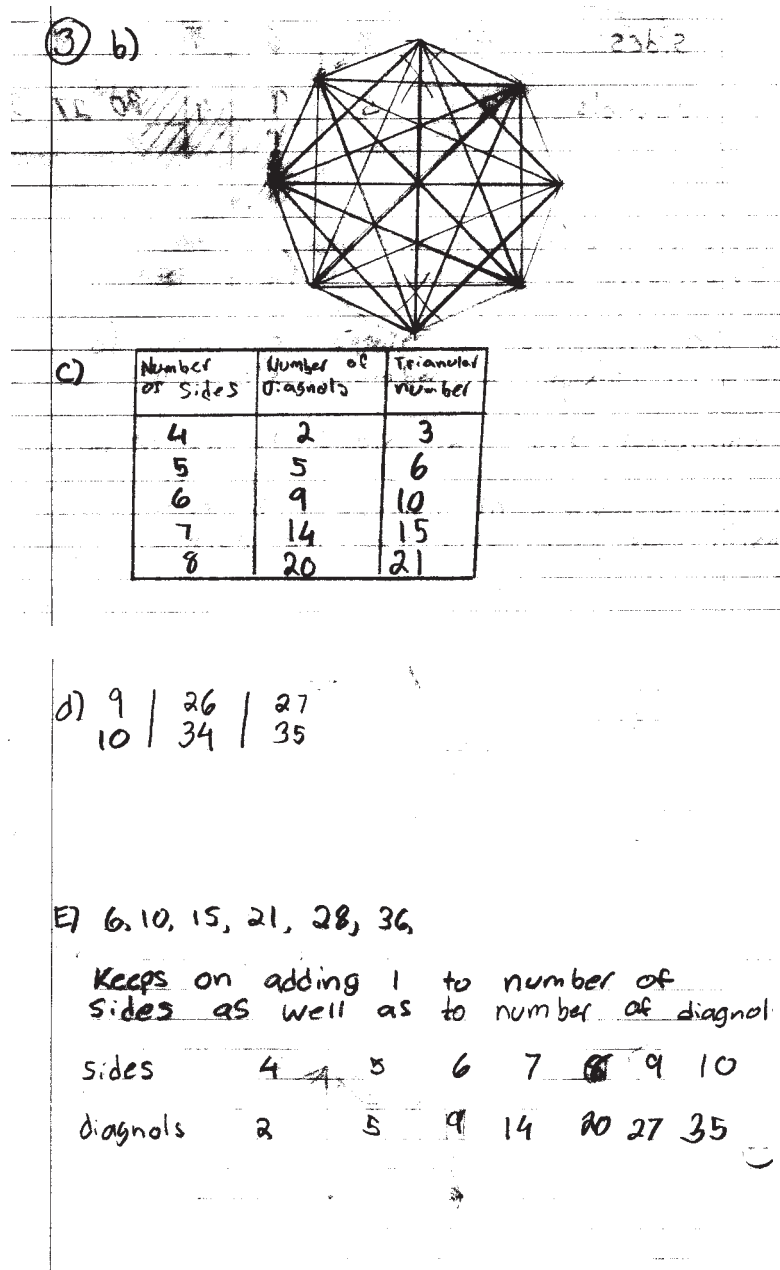 3 b)
c)
Number of Sides | Number of Diagnols | Trianular number
4 | 2 | 3
5 | 5 | 6
6 | 9 | 10
7 | 14 | 15
8 | 20 | 21
d) 9 | 26 | 27
10 | 34 | 35
E) 6, 10, 15, 21, 28, 36,
Keeps on adding 1 to number of
sides as well as to number of diagnol
sides 4 5 6 7 8 9 10
diagnols 2 5 9 14 20 27 35